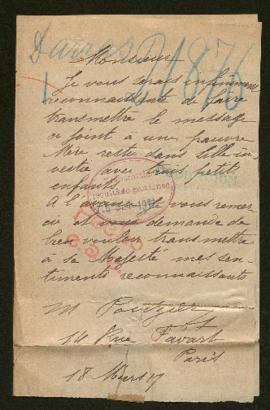 Darras 21876
Monsieur
Je vous serais infiniment
reconnaissante de faire
transmettre le message
ci joint à un pauvre
Mère restée dans Lille in-
vestie avec trois petits
enfants.
A l'avance je vous remer
cie et vous demande de
bien vouloir transmettre
à sa Majesté mes sen-
timents reconnaissants
M
14 Rue Favart
Paris
18 Mars 17